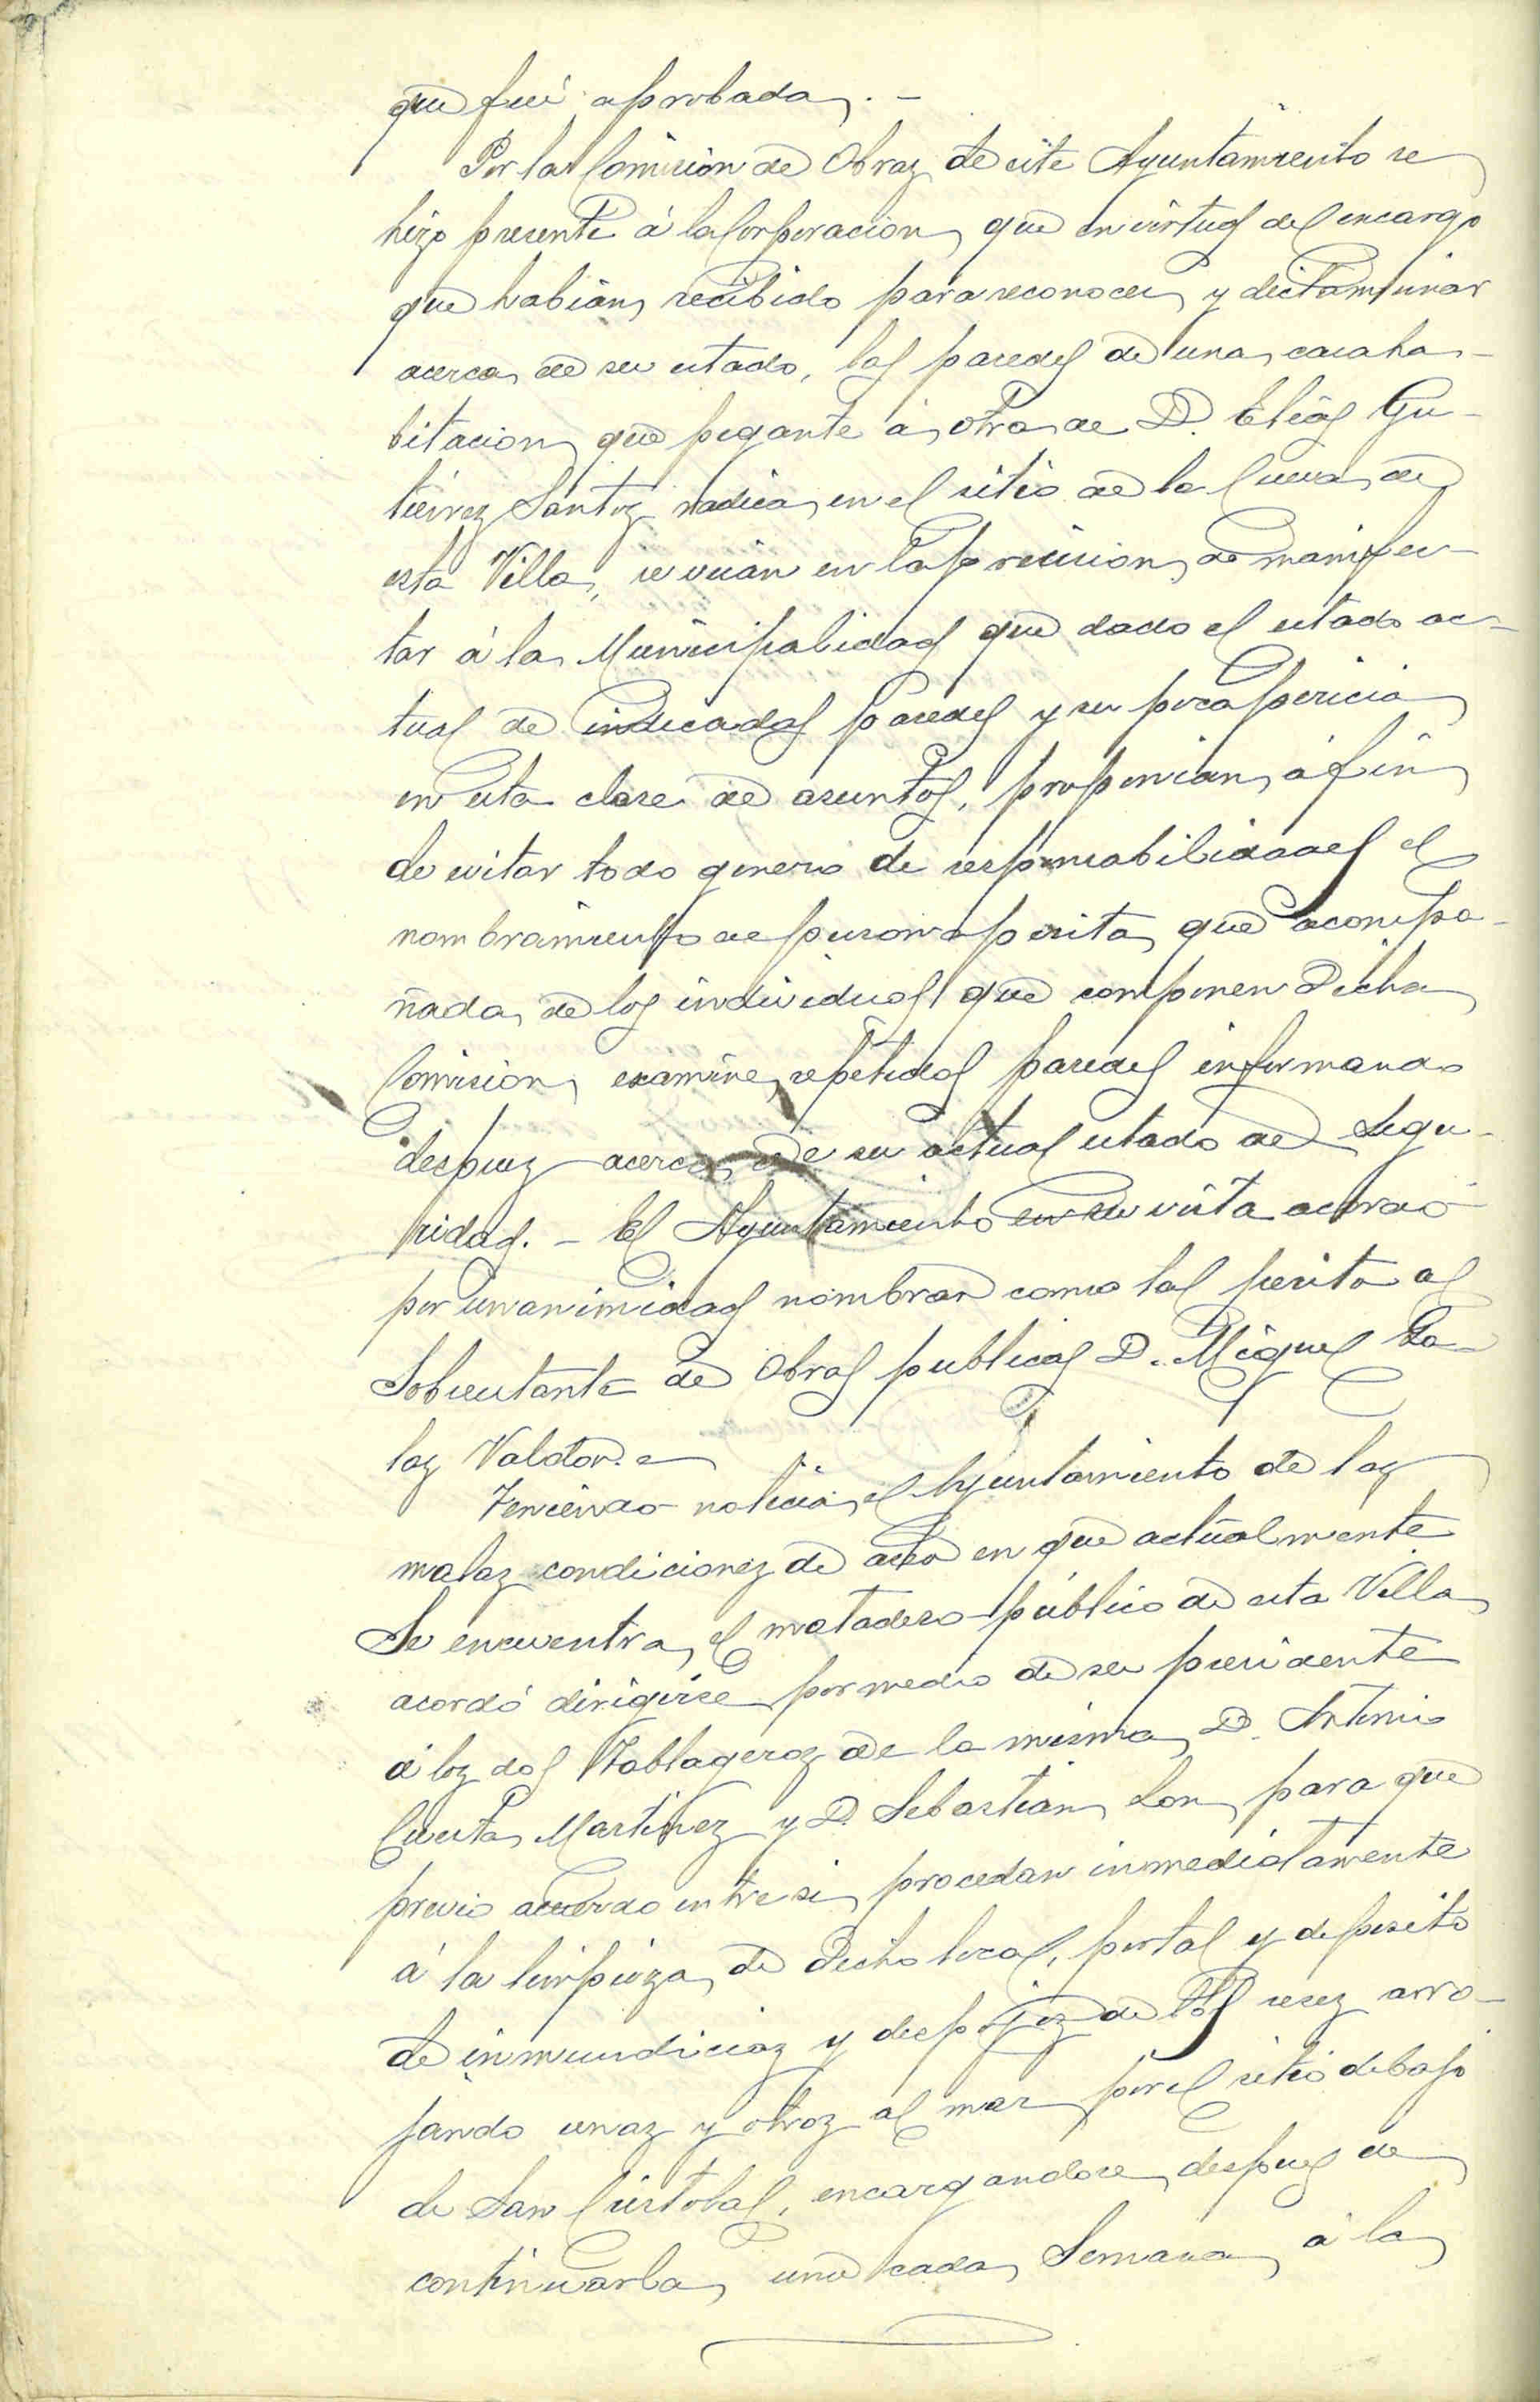 que fué aprobada. -
Por la Comision de Obras de este Ayuntamiento se
hizo presente á la Corporacion que en virtud del encargo
que habian recibido para reconocer y dictaminar
acerca de su estado, las paredes de una casa ha-
bitacion que pegante á otra de D. Elías Gu-
tierrez Santos radica en el sitio de la Cueva de
esta Villa, se veian en la precision de manifes-
tar á la Municipalidad que dado el estado ac-
tual de indicadas paredes y su poca pericia
en esta clase de asuntos, proponian á fin
de evitar todo genero de responsabilidades el
nombramiento de persona perita que acompa-
ñada de los individuos que componen dicha
Comision examine repetidas paredes informando
despues acerca de su actual estado de segu-
ridad. - El Ayuntamiento en su vista acordó
por unanimidad nombrar como tal perito al
Sobrestante de Obras publicas D. Miguel
Teniendo noticia el Ayuntamiento de las
malas condiciones de aseo en que actualmente
se encuentra el matadero público de esta Villa
acordó dirigirse por medio de su presidente
á los dos Tablageros de la misma D. Antonio
Cuesta Martinez y D. Sebastian Lon para que
previo acuerdo entre si procedan inmediatamente
á la limpieza de dicho local, portal y deposito
de inmundicias y despojos de las reses arro-
jando unas y otros al mar por el sitio debajo
de San Cristobal, encargandose despues de
continuarla uno cada Semana á la